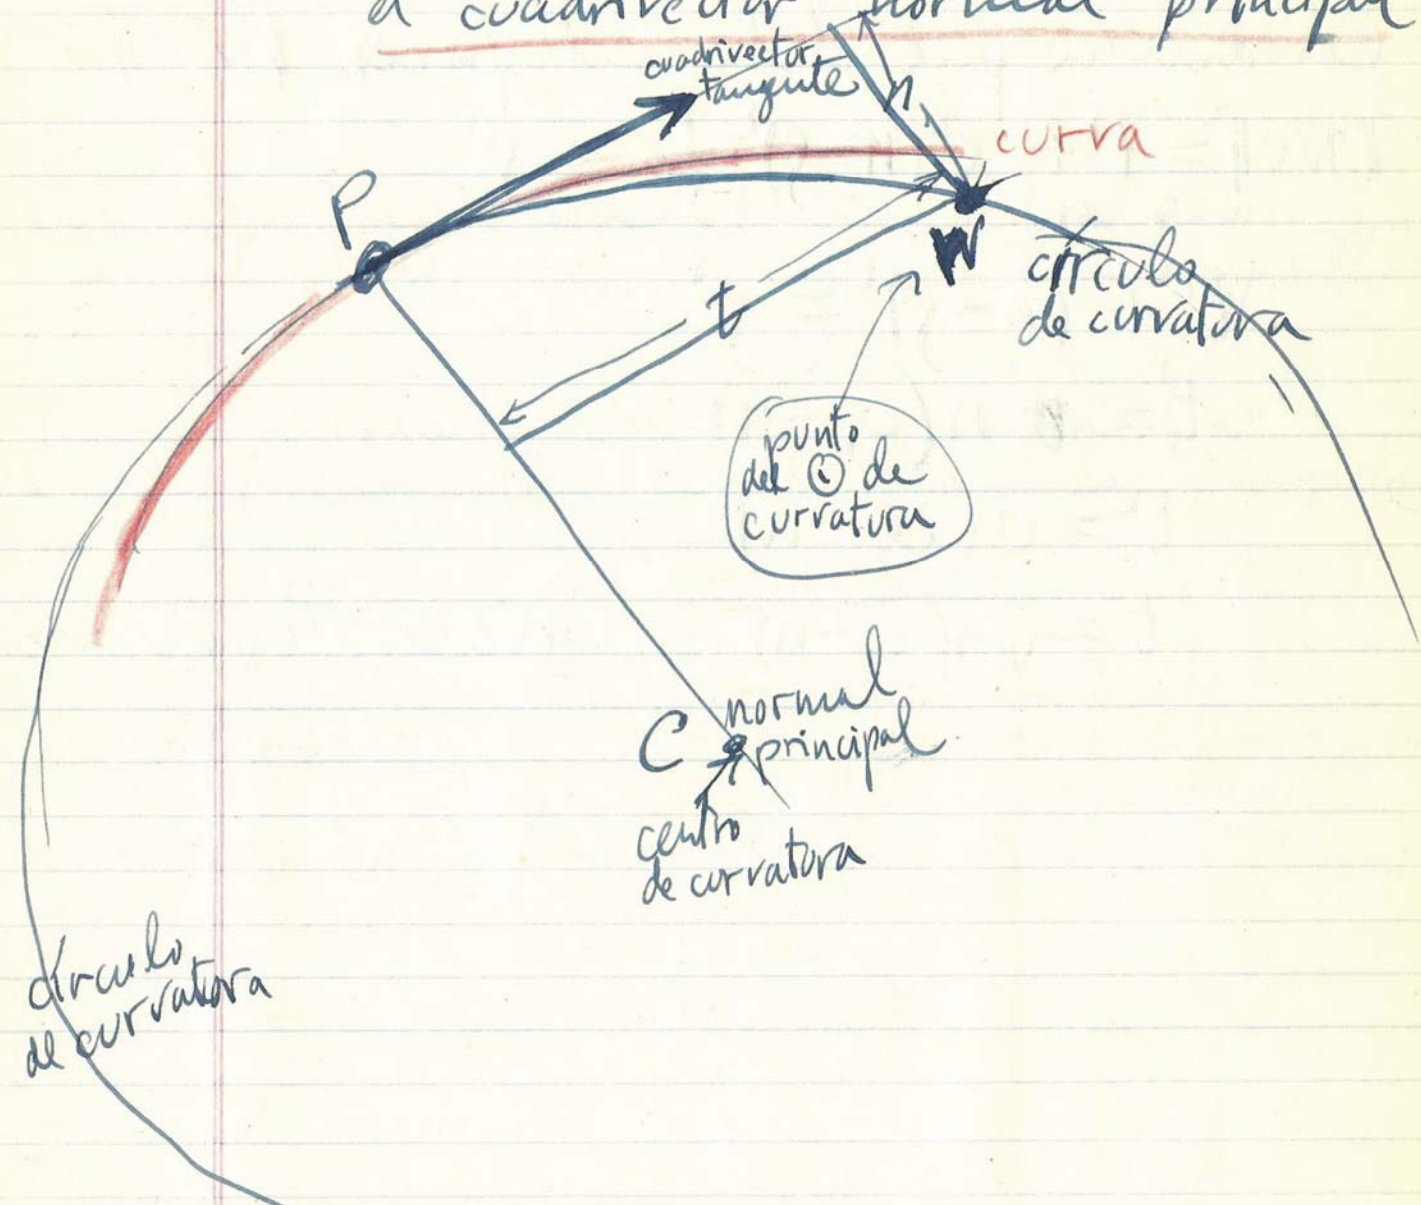 a cuadrivector normal principal
cuadrivector
tangente
n
curva
P
W
círculo
de curvatura
t
punto
del ⊙ de
curvatura
normal
C principal
centro
de curvatura
círculo
de curvatura